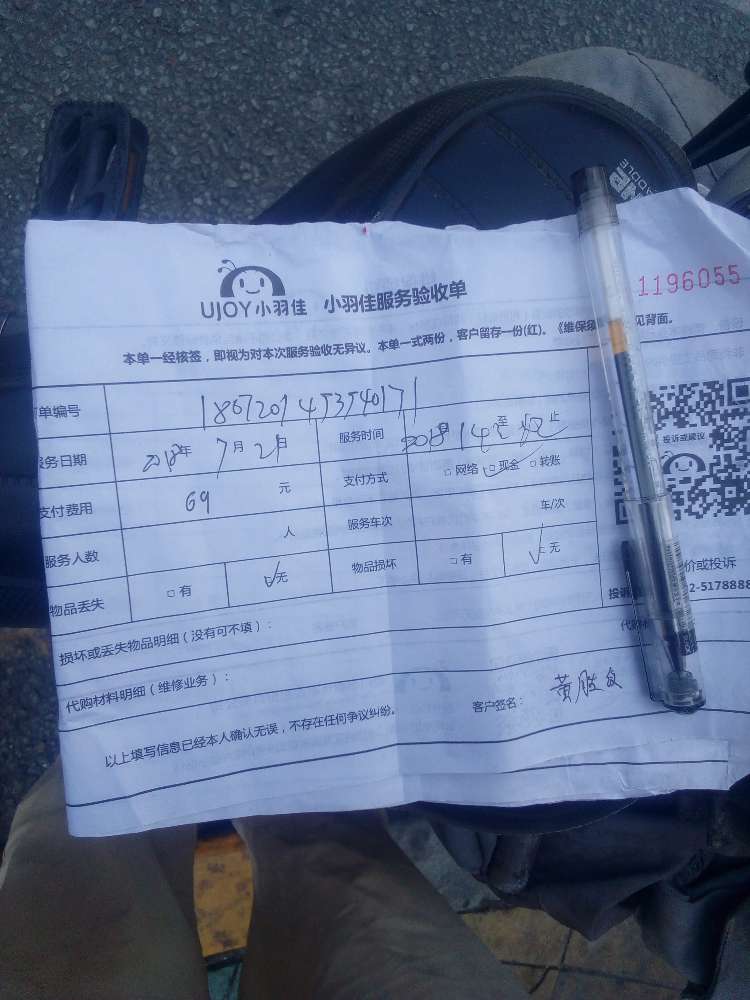 PADDLE
UJOY小羽佳 小羽佳服务验收单
1196055
本单一经核签，即视为对本次服务验收无异议。本单一式两份，客户留存一份(红)。《维保须 见背面。
单编号 1867201453540171
务日期 2018年 7月21日 服务时间 14至 止
支付费用 69 元 支付方式 □网络 □现金 □转账
服务人数 人 服务车次 车/次
物品丢失 □有 □无 物品损坏 □有 □无
投诉或建议
价或投诉
投诉 2-5178888
损坏或丢失物品明细（没有可不填）：
代购材料明细（维修业务）：
代购
以上填写信息已经本人确认无误，不存在任何争议纠纷。 客户签名： 黄胜